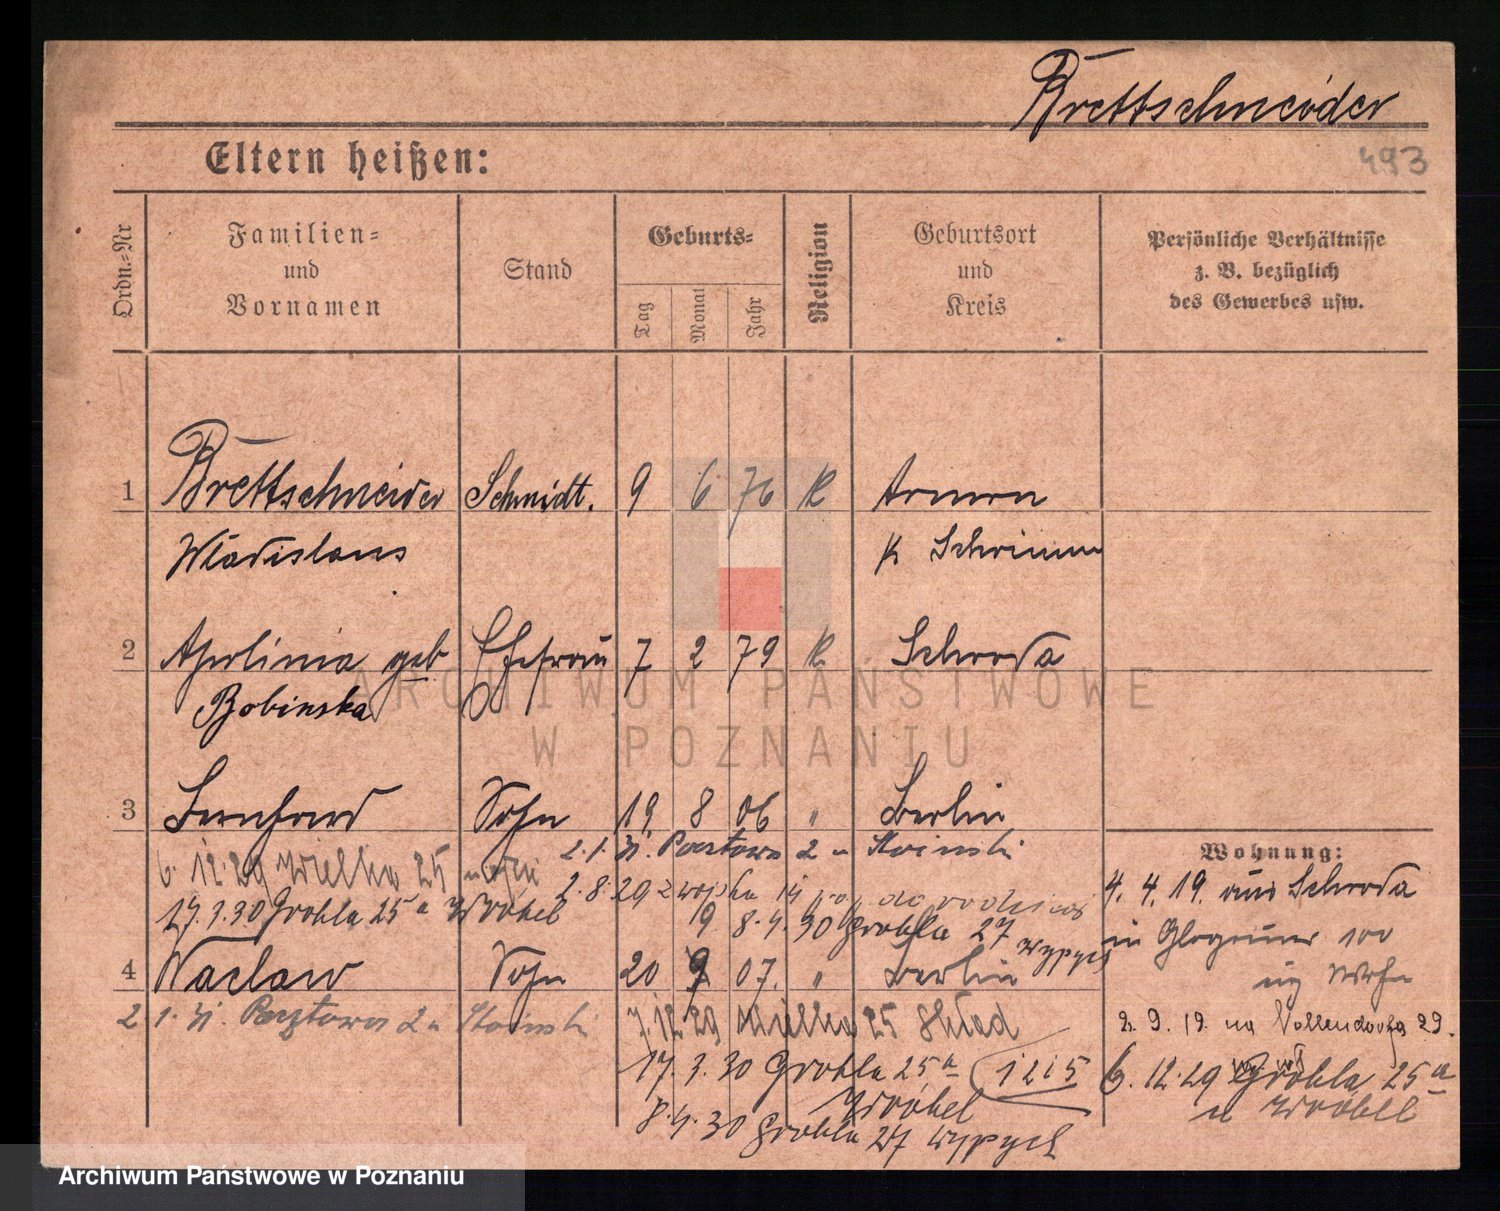 Brettschneider
Eltern heißen:
493
Ordn.-Nr
Familien-
und
Vornamen
Stand
Geburts-
Tag
Monat
Jahr
Religion
Geburtsort
und
Kreis
Persönliche Verhältnisse
z. B. bezüglich
des Gewerbes usw.
1 Brettschneider Schmidt. 9 6 76 K
Wladislaus K Schrimm
2 Apolinia geb Ehefrau 7 2 79 K Schroda
Bobinska
3 Bernhard Sohn 19 8 06 " Berlin
2.1.31. Pocztowa 2
Wohnung:
6.12.29 Wielka 25
2.8.29 z wojska 14
4.4.19. aus Schroda
17.3.30 Grobla 25a Wróbel
8.4.30 Grobla 27 Wypych
in 100
4 Waclaw Sohn 20 9 07. " Berlin
2.1.31. Pocztowa 2
7.12.29 Wielka 25 Skład
2.9.19. na Vollendorfa 29.
17.3.30 Grobla 25a 1215
Wróbel
6.12.29 Grobla 25a
u Wróbel
8.4.30 Grobla 27 Wypych
ARCHIWUM PAŃSTWOWE
W POZNANIU
Archiwum Państwowe w Poznaniu